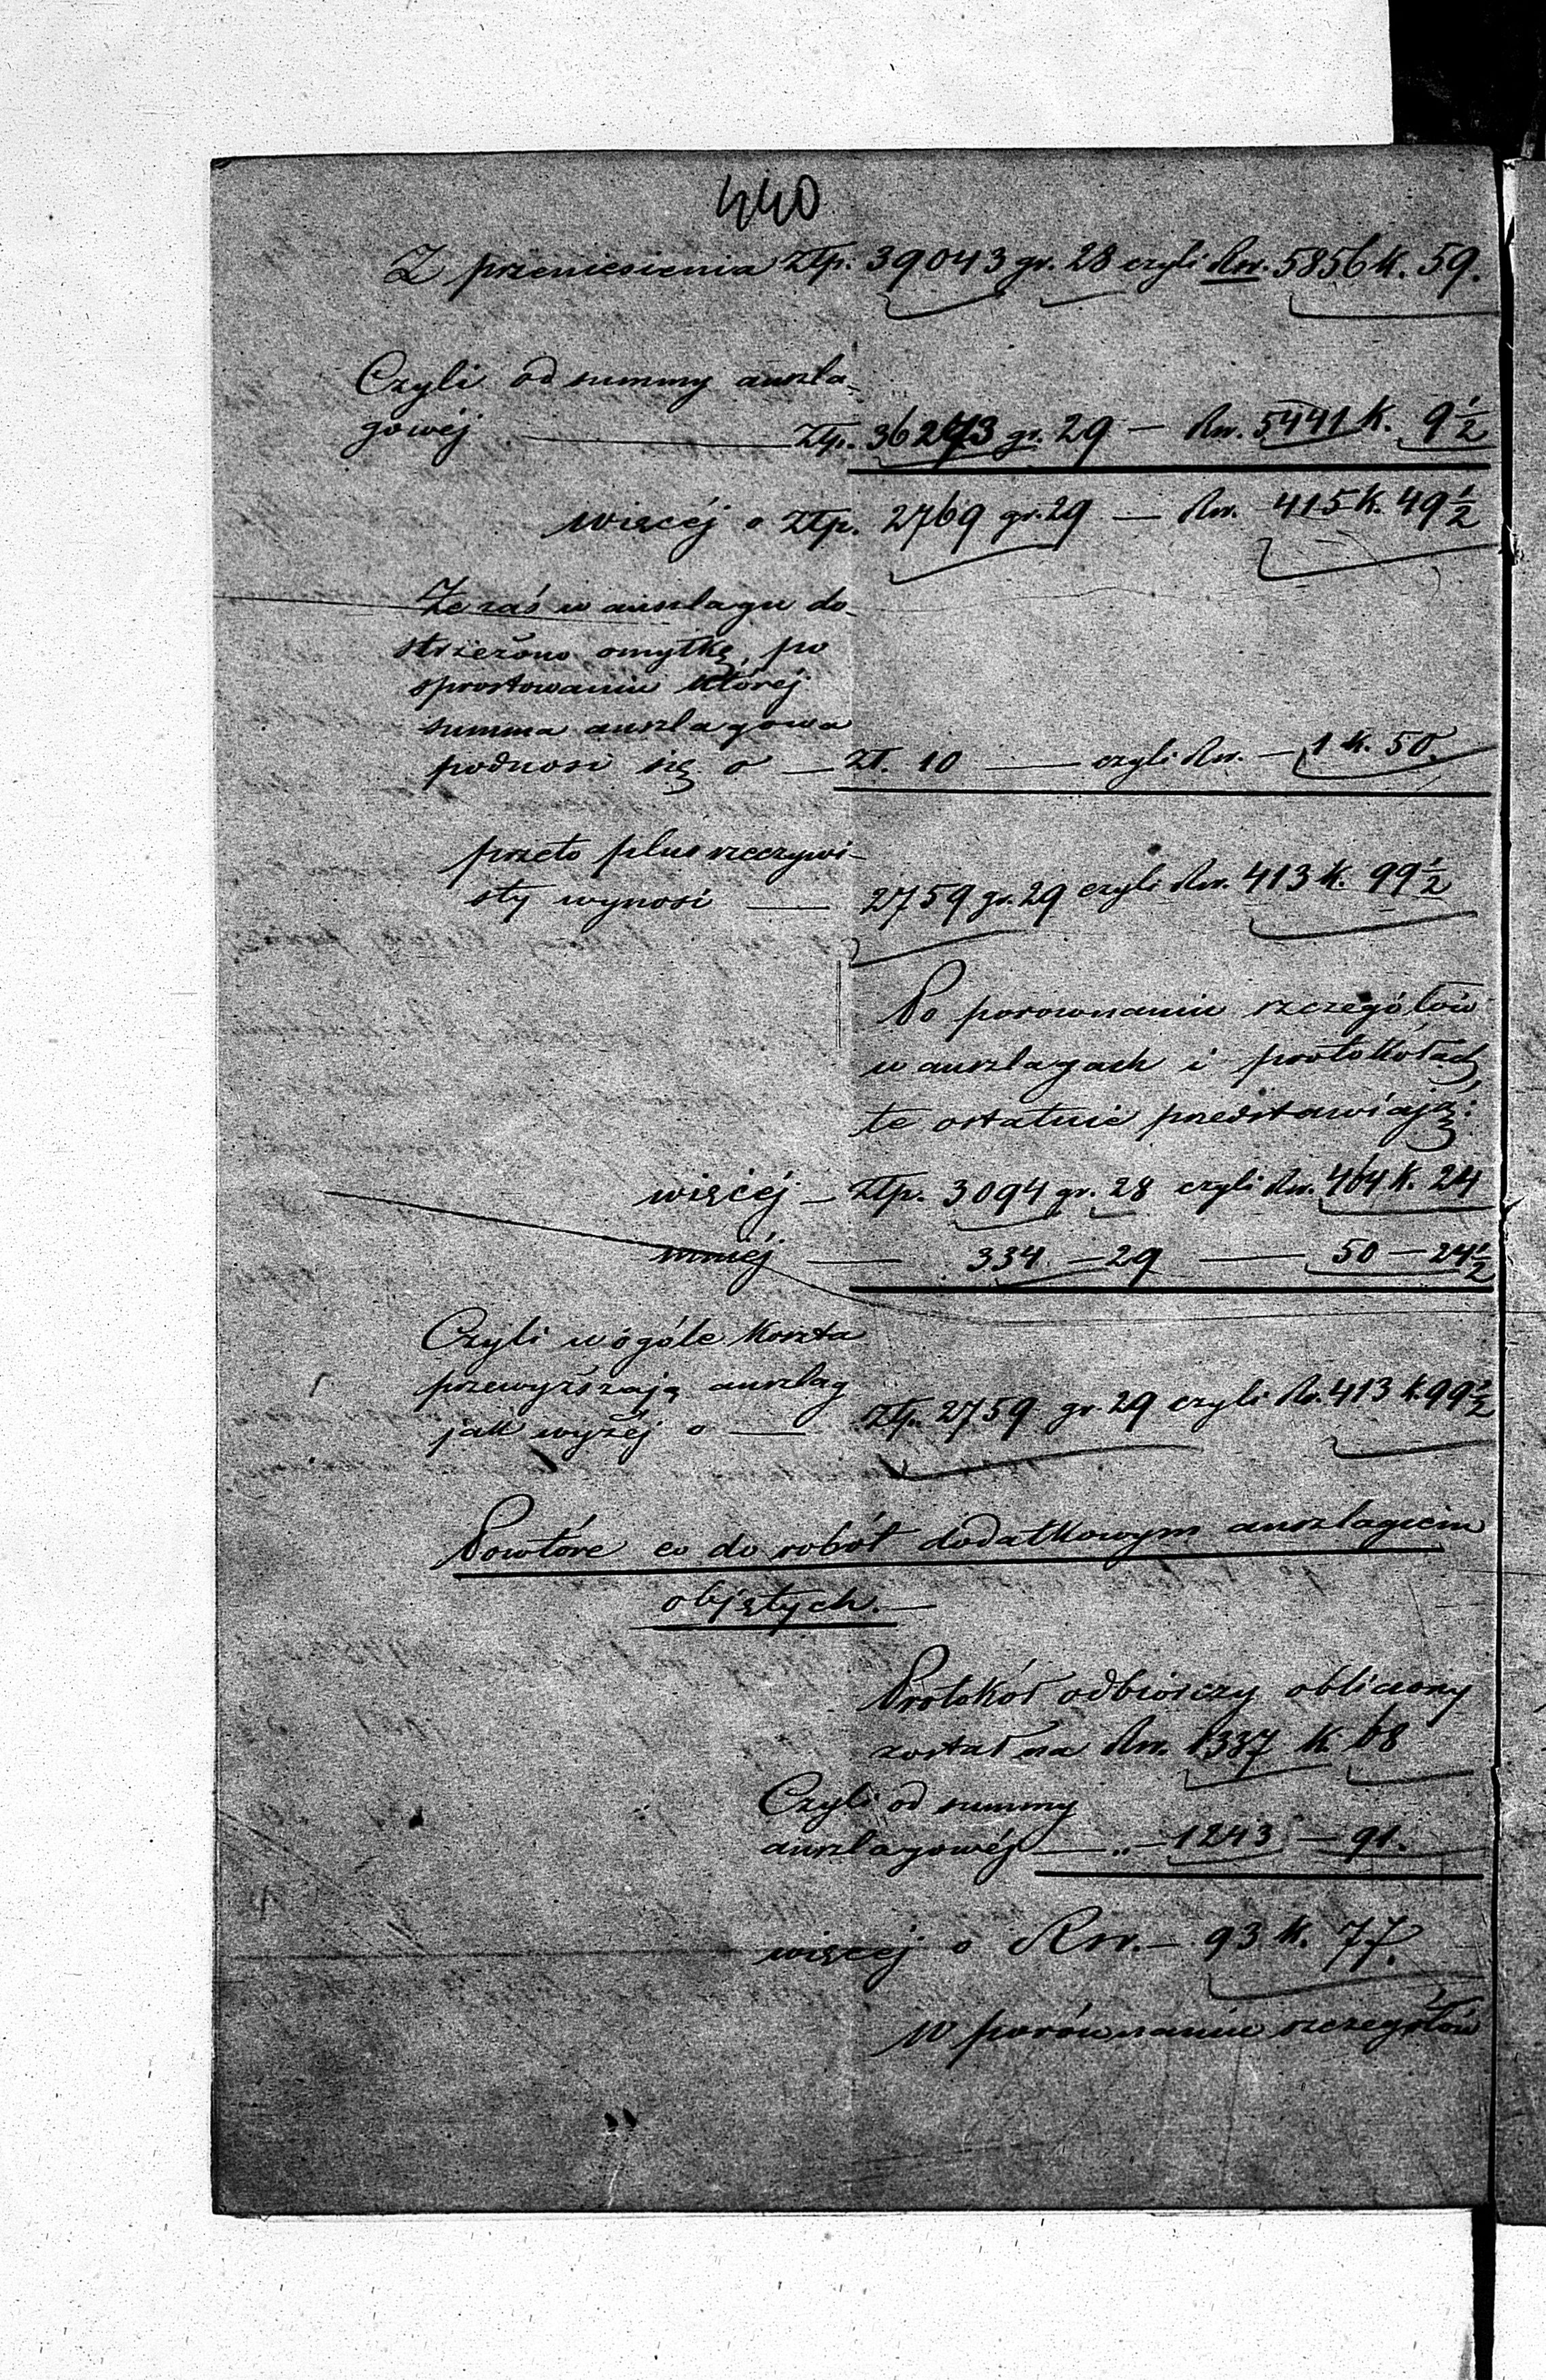 440
Z przeniesienia Złp. 39043 gr. 28 czyli Rsr. 5856 k. 59.
Czyli od summy anszla-
gowéj — Złp. 36273 gr. 29 — Rsr. 5441 k. 9½
więcéj o Złp. 2769 gr. 29 — Rsr. 415 k. 49½
Że zaś w anszlagu do-
strzeżono omyłkę, po
sprostowaniu któréj
summa anszlagowa
podnosi się o — Zł. 10 — czyli Rsr. — 1 k. 50.
przeto plus rzeczywi-
sty wynosi — 2759 gr. 29 czyli Rsr. 413 k. 99½
Po porownaniu szczegółów
w anszlagach i protokołach,
te ostatnie przedstawiają:
więcéj — Złp. 3094 gr. 28 czyli Rsr. 464 k. 24
mniéj — 334 — 29 — 50 — 24½
Czyli w ogóle koszta
przewyższają anszlag
jak wyżéj o — Złp. 2759 gr. 29 czyli Rs. 413 k. 99½
Powtóre co do robót dodatkowym anszlagiem
objętych. —
Protokół odbiorczy obliczony
został na Rsr. 1337 k. 68
Czyli od summy
anszlagowéj — „ — 1243 — 91.
więcej o Rsr. — 93 k. 77.
W porównaniu szczegółów